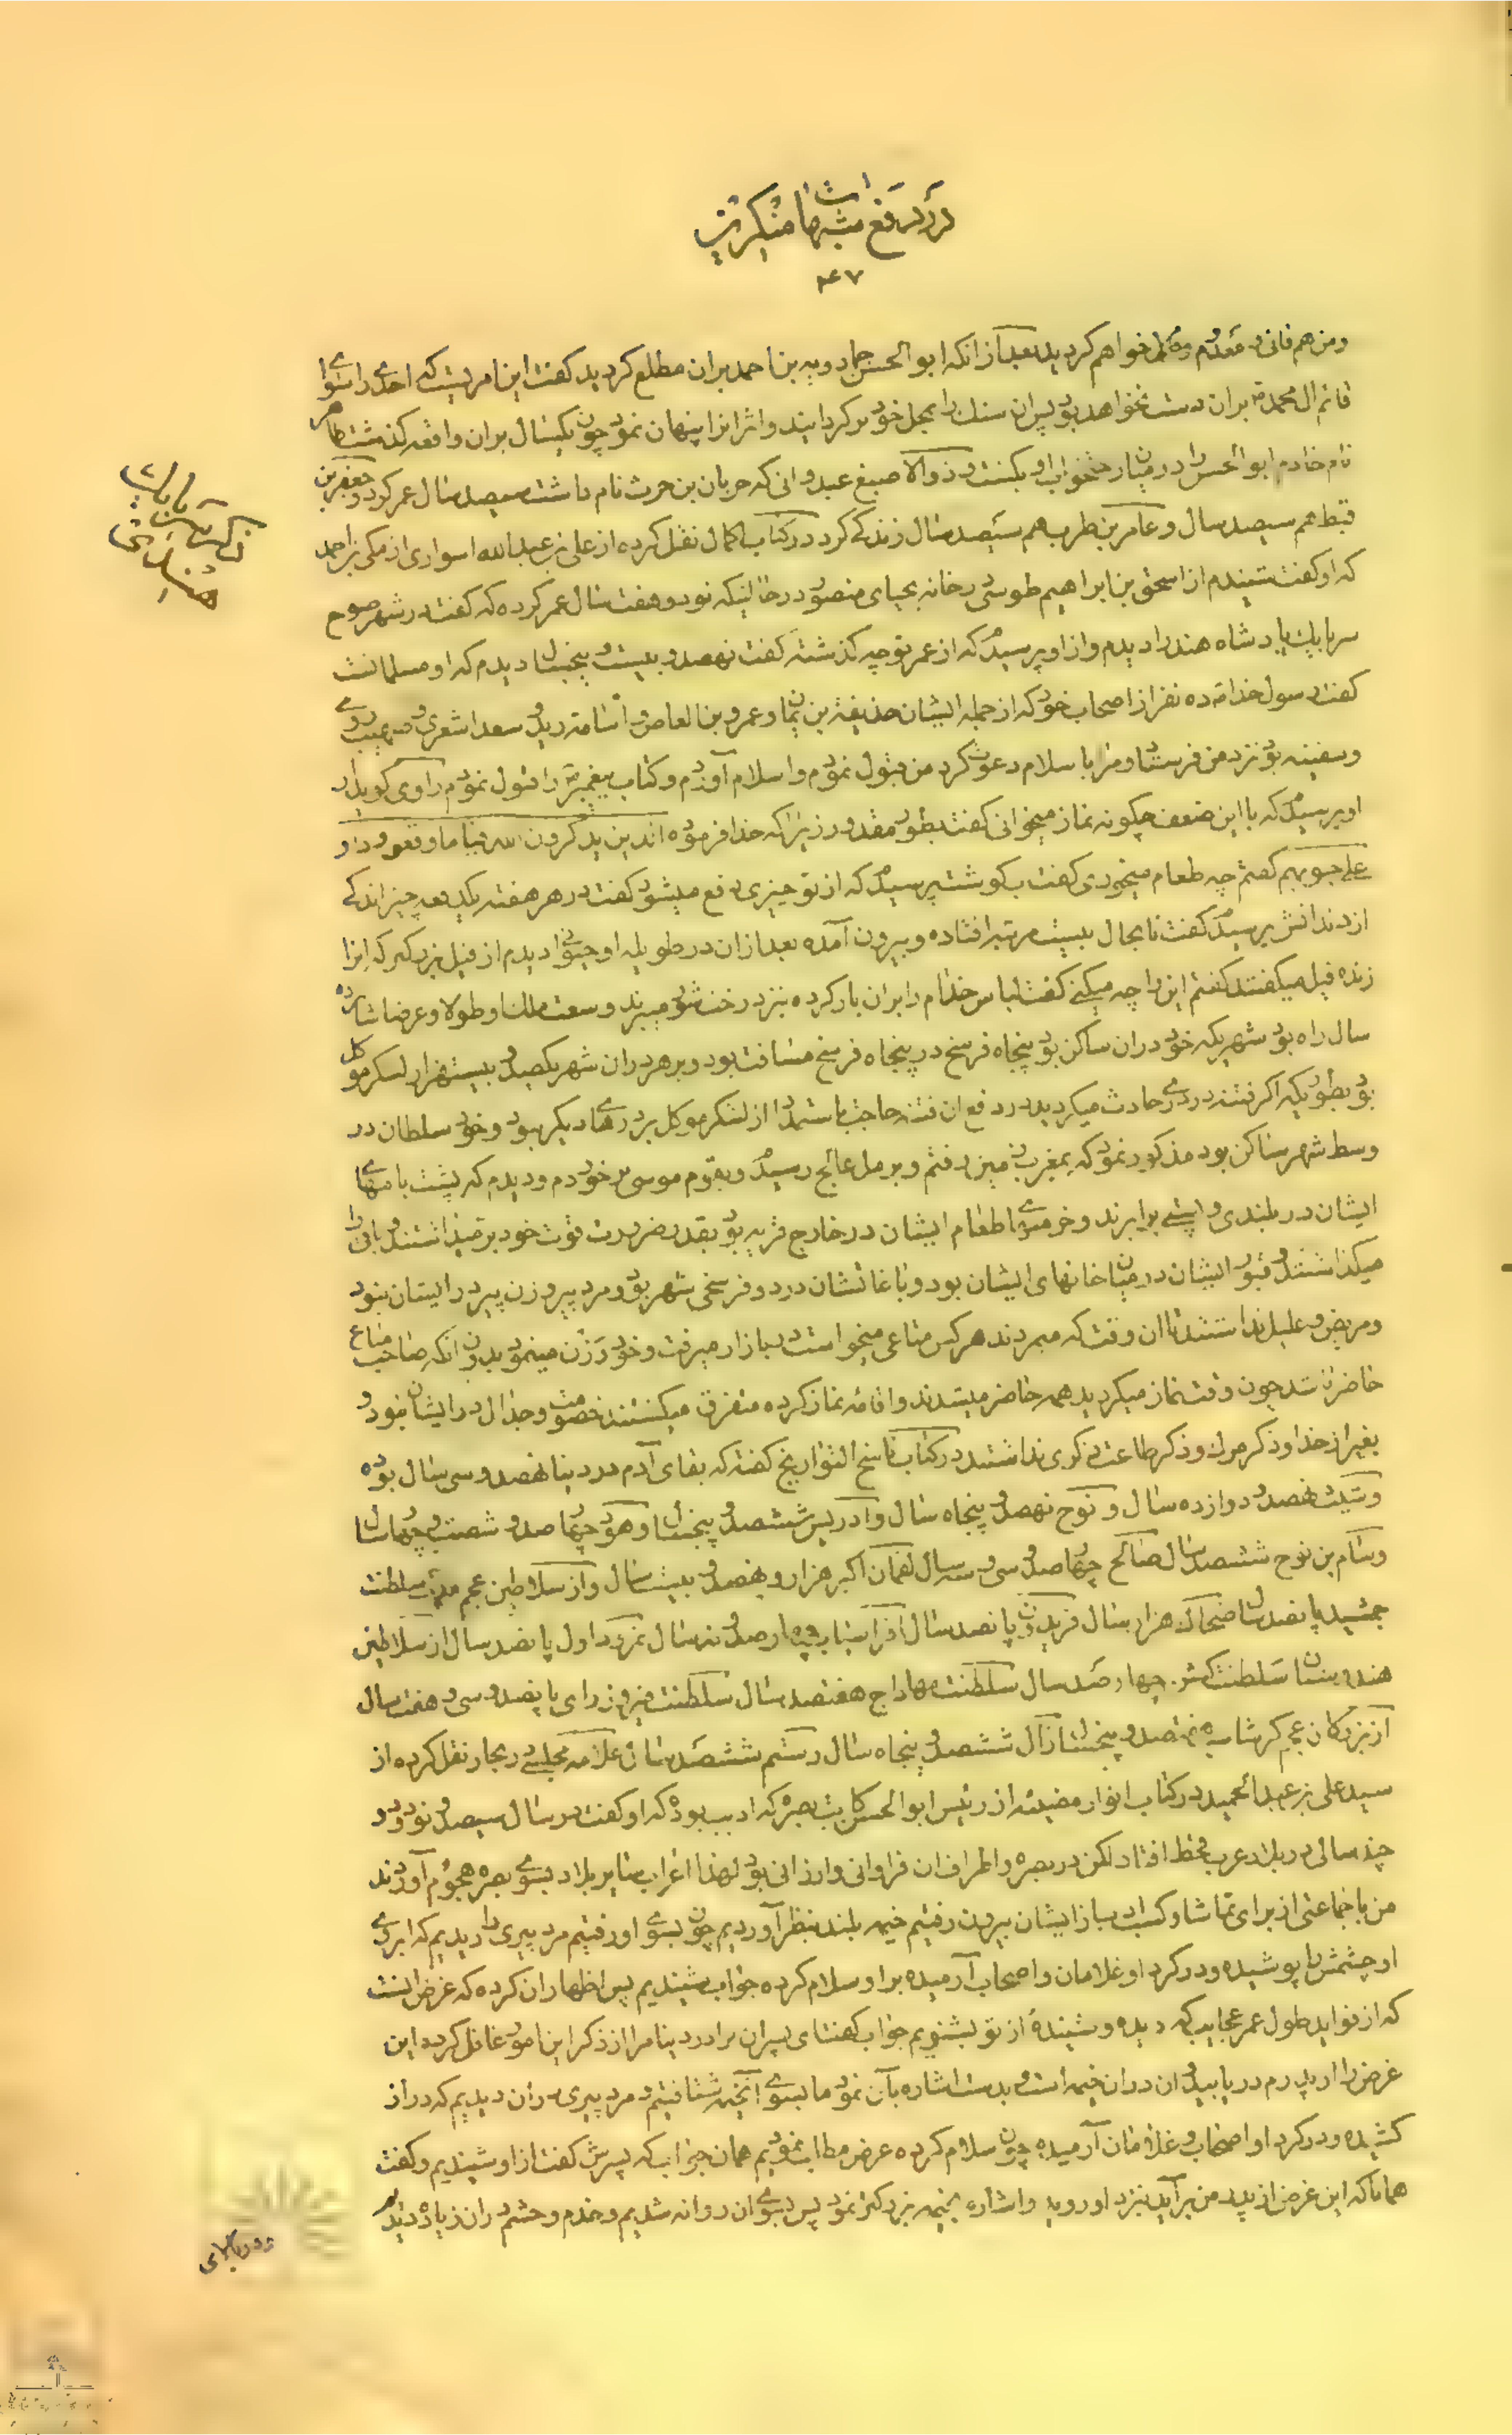 در رفع شبهات منکرین
۴۶۷
و من هم فانی و معدوم خواهم کردید بعد از انکه ابو الحسن حمادویه بن احمد بران مطلع کردید کفت این امریست که احدی را سوای
قائم ال محمد بران دست نخواهد بود پس ان سنك را بمحل خود بر کردانیند و اثر انرا پنهان نمود چون یکسال بران واقعه کذشت طاهر
نام خادم ابو الحسن را در میان رختخواب او بکشت و ذو الاصبع عدوانی که حرثان بن حرث نام داشت سیصد سال عمر کرد و جعفر بن
قبط هم سیصد سال و عامر بن ظرب هم سیصد سال زندکی کرد در کتاب اکمال نقل کرده از علی بن عبد الله اسواری از مکی بن احمد
که او کفت شنیدم از اسحق بن ابراهیم طوسی در خانه یحیای منصور در حالتیکه نود و هفت سال عمر کرده که کفت در شهر صوح
سربابك پادشاه هند را دیدم و از او پرسیدم که از عمر تو چه کذشته کفت نهصد و بیست و پنجسال دیدم که او مسلمانست
کفت رسول خدا ده نفر از اصحاب خود که از جمله ایشان حذیفة بن یمان و عمرو بن العاص و اسامة و زید و سعد اشعری و صهیب رومی
و سفینه بود نزد من فرستاد و مرا باسلام دعوت کرد من قبول نمودم و اسلام آوردم و کتاب پیغمبر را قبول نمودم راوی کوید از
او پرسیدم که با این ضعف چکونه نماز میخوانی کفت بطور مقدور زیرا که خدا فرموده الذین یذکرون الله قیاما و قعودا و
علی جنوبهم کفتم چه طعام میخوری کفت اب کوشت پرسیدم که از تو چیزی دفع میشود کفت در هر هفته یکدفعه چیز اندکی
از دندانش پرسیدم کفت تا بحال بیست مرتبه افتاده و بیرون آمده بعد از ان در طویله او حیوانی دیدم از فیل بزرکتر که انرا
زنده فیل میکفتند کفتم این را چه میکنی کفت لباس خدام را بران بار کرده نزد رخت شوی میبرند و وسعت ملك او طولا و عرضا چهار
سال راه بود شهریکه خود دران ساکن بود پنجاه فرسخ در پنجاه فرسخ مسافت بود و بر هر در ان شهر یکصد و بیست هزار لشکر موکل
بود بطوریکه اکر فتنه در دری حادث میکردید در دفع ان فتنه حاجت باستمداد از لشکر موکل بر درهای دیکر نبود و خود سلطان در
وسط شهر ساکن بود مذکور نمود که بمغرب زمین رفتم و برمل عالج رسیدم و بقوم موسی بر خوردم و دیدم که پشت بامهای
ایشان در بلندی و پستی برابرند و خرمنهای طعام ایشان در خارج قریه بود بقدر ضرورت قوت خود بر میداشتند و باقی را
میکذاشتند و قبور ایشان در میان خانهای ایشان بود و باغاتشان در دو فرسخی شهر بود و مرد پیر و زن پیر در ایشان نبود
و مریض و علیل نداشتند تا ان وقت که میمردند هر کس متاعی میخواست ببازار میرفت و خود وزن مینمود بدون انکه صاحب متاع
حاضر باشد چون وقت نماز میکردید همه حاضر میشدند و اقامه نماز کرده متفرق میکشتند خصومت و جدال در ایشان نبود و
بغیر از خدا و ذکر موت و ذکر طاعت ذکری نداشتند در کتاب ناسخ التواریخ کفته که بقای آدم در دنیا نهصد و سی سال بوده
و شیث نهصد و دوازده سال و نوح نهصد و پنجاه سال و ادریس ششصد و پنجسال و هود چهار صد و شصت و چهار سال
و سام بن نوح ششصد سال صالح چهار صد و سی و سه سال لقمان اکبر هزار و پنصد و بیست سال و از سلاطین عجم مدت سلطنت
جمشید پانصد سال ضحاك هزار سال فریدون پانصد سال افراسیاب چهار صد و نه سال نمرود اول پانصد سال از سلاطین
هندوستان سلطنت کشن چهار صد سال سلطنت مهاراج هفتصد سال سلطنت فیروز رای پانصد و سی و هفت سال
از بزرکان عجم کرشاسب هفتصد و پنجسال زال ششصد و پنجاه سال رستم ششصد سال علامه مجلسی در بحار نقل کرده از
سید علی بن عبد الحمید در کتاب انوار مضیئه از رئیس ابو الحسن کاتب بصره که ادیب بوده که او کفت در سال سیصد و نود و دو
چند سالی در بلاد عرب قحط افتاد لکن در بصره و اطراف ان فراوانی و ارزانی بود لهذا اعراب سایر بلاد بسوی بصره هجوم آوردند
من با جماعتی از برای تماشا و کسب ادب از ایشان بیرون رفتیم خیمه بلند بنظر آوردیم چون بسوی او رفتیم مرد پیری را دیدیم که ابروی
او چشمش را پوشیده و در کرد او غلامان و اصحاب آرمیده بر او سلام کرده جواب شنیدیم پس اظهار ان کرده که غرض انست
که از فواید طول عمر عجایب که دیده و شنیدهٔ از تو بشنویم جواب کفت ای پسران برادر دنیا مرا از ذکر این امور غافل کرده این
غرض را از پدرم دریابید و ان دران خیمه است و بدست اشاره بآن نمود ما بسوی انخیمه شتافتیم مرد پیری دران دیدیم که دراز
کشیده و در کرد او اصحاب و غلامان آرمیده چون سلام کرده عرض مطالب نمودیم همان جواب که پسرش کفت از او شنیدیم و کفت
همانا که این غرض از پدر من برآید بنزد او روید و اشاره بخیمه بزرکتر نمود پس بسوی ان روانه شدیم و خدم و حشم دران زیاده دیدیم
ذکر سربابك
هندی